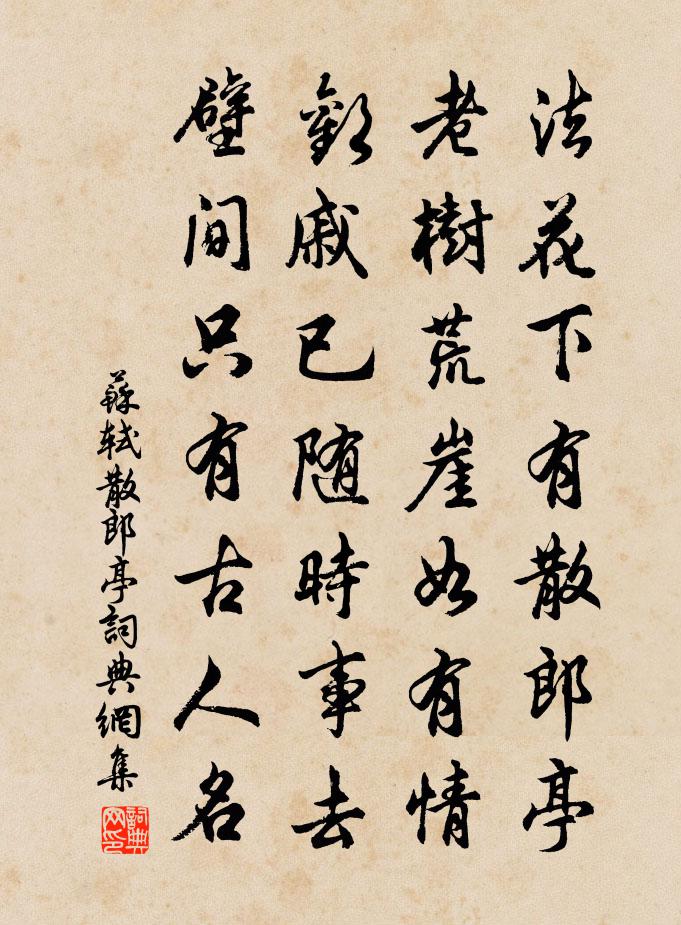 法花下有散郎亭
老樹荒崖如有情
歡戚已随時事去
壁間只有古人名
蘇軾散郎亭詞典網集
詞典网印